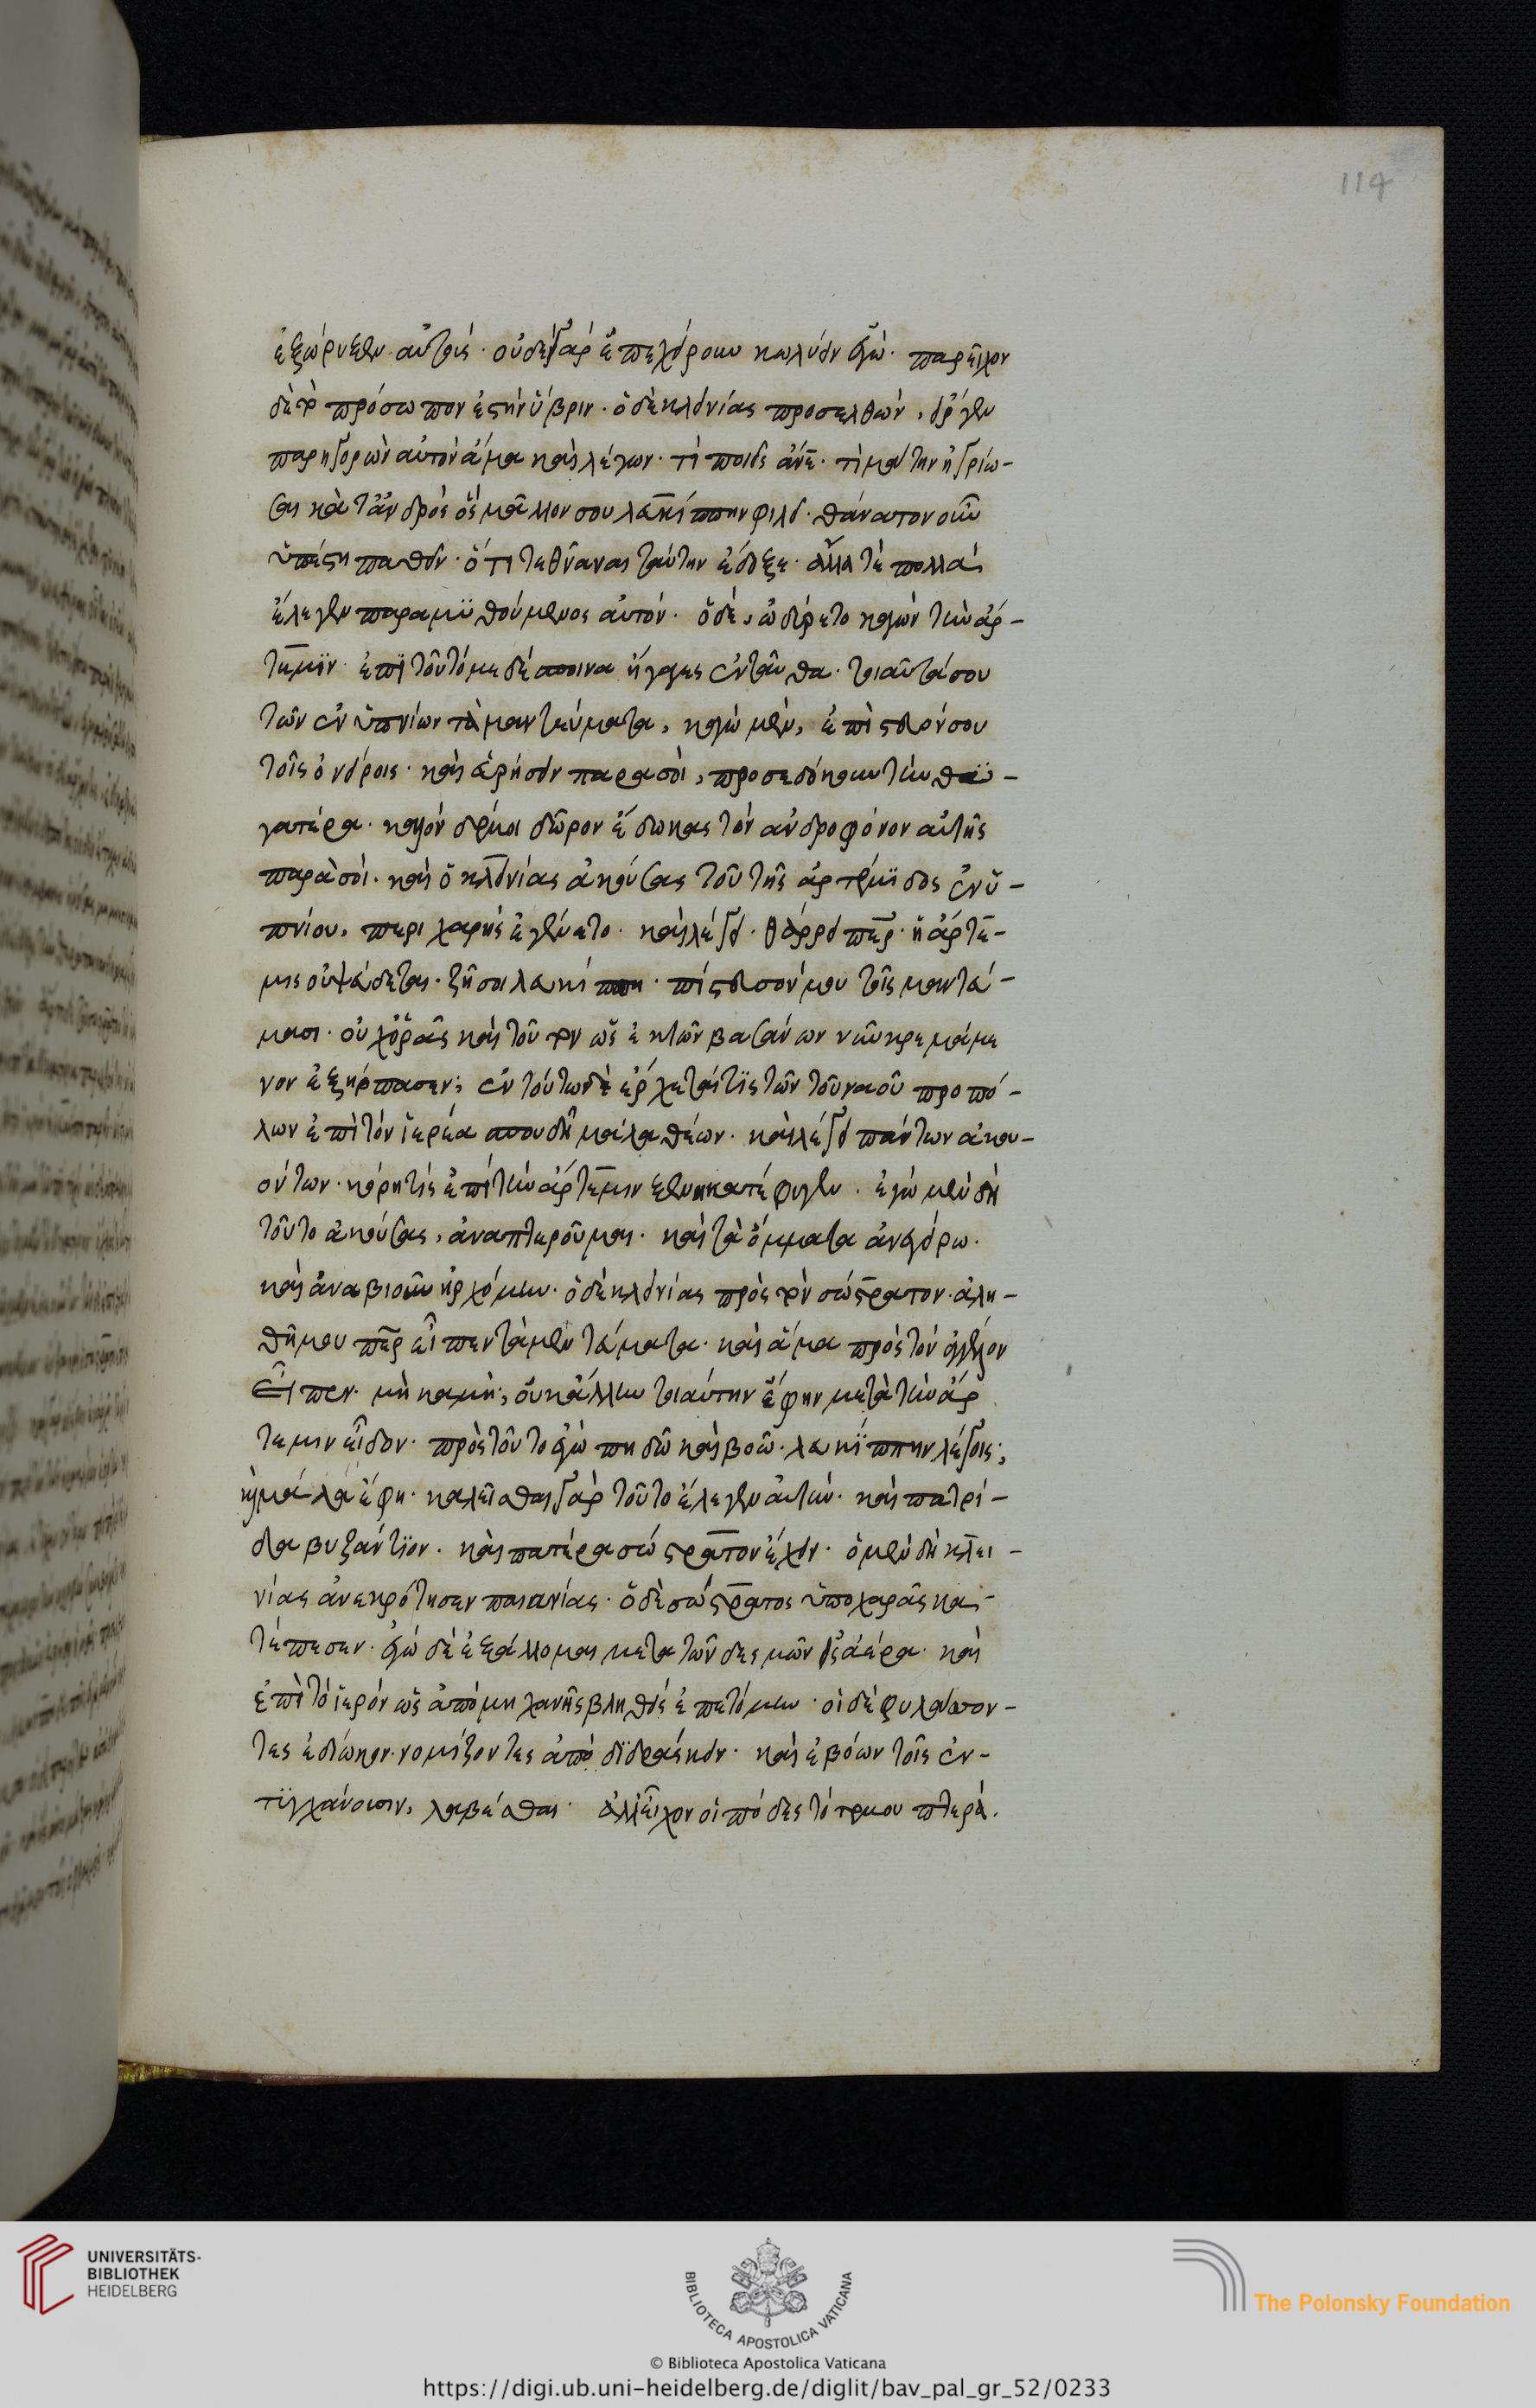 ἐξώρυξεν αὐτοῖς· οὐδὲ γὰρ ἐπεχείρουν κωλύειν ἐγώ· παρεῖχον
δὲ τὸ πρόσωπον ἐς τὴν ὕβριν· ὁ δὲ κλεινίας προσελθὼν, εἴργεν
παρηγορῶν αὐτὸν ἅμα καὶ λέγων· τί ποιεῖς ἄνε· τί μάτην ἠγρίω-
σαι κατ' ἀνδρὸς ὃς μᾶλλον σου λευκίππην φιλεῖ· θάνατον οὖν
ὑπέστη παθεῖν· ὅτι τεθνάναι ταύτην ἔδοξε· ἄλλα τὲ πολλὰ
ἔλεγεν παραμυθούμενος αὐτόν· ὁ δὲ, ὠδύρετο καλῶν τὴν ἄρ-
τεμϊν· ἐπὶ τοῦτό με δέσποινα ἤγαγες ἐνταῦθα· τοιαῦτά σου
τῶν ἐνυπνίων τὰ μαντεύματα, κἀγὼ μὲν, ἐπίστευόν σου
τοῖς ὀνείροις· καὶ εὑρήσειν παρὰ σοὶ, προσεδόκουν τὴν θυ-
γατέρα· καλὸν δέ μοι δῶρον ἔδωκας τὸν ἀνδροφόνον αὐτῆς
παρὰ σοί· καὶ ὁ κλεινίας ἀκούσας τοῦ τῆς ἀρτέμϊδος ἐνυ-
πνίου, περιχαρὴς ἐγένετο· καὶ λέγει· θάρρει πάτερ· ἡ ἄρτε-
μις οὐ ψεύδεται· ζῇ σοι λευκίππη· πίστευσόν μου τοῖς μαντεύ-
μασι· οὐχ ὁρᾷς καὶ τοῦτον ὡς ἐκ τῶν βασάνων νῦν κρεμάμε
νον ἐξήρπασεν; ἐν τούτω δὲ ἔρχεταί τϊς τῶν τοῦ ναοῦ προπό-
λων ἐπὶ τὸν ἱερέα σπουδῇ μάλα θέων· καὶ λέγει πάντων ἀκου-
όντων· κόρη τίς ἐπὶ τὴν ἄρτεμιν ξένη κατέφυγεν· ἐγὼ μὲν δὴ
τοῦτο ἀκούσας, ἀναπτεροῦμαι· καὶ τὰ ὄμματα ἀνεγείρω·
καὶ ἀναβιοῦν ἠρχόμην· ὁ δὲ κλεινίας πρὸς τὸν σώστρατον· ἀλη-
θῆ μου πάτερ εἶπεν τὰ μαντεύματα· καὶ ἅμα πρὸς τὸν ἄγγελον
εἶπεν· μὴ καλή; οὐκ ἄλλην τοιαύτην ἔφην μετὰ τὴν ἄρ
τεμιν εἶδον· πρὸς τοῦτο ἐγὼ πηδῶ καὶ βοῶ· λευκίππην λέγεις;
καὶ μάλα ἔφη· καλεῖσθαι γὰρ τοῦτο ἔλεγεν αὐτήν· καὶ πατρί-
δα βυζάντϊον· καὶ πατέρα σώστρατον ἔχειν· ὁ μὲν δὴ κλει-
νίας ἀνεκρότησεν παιανίας· ὁ δὲ σώστρατος ὑπὸ χαρᾶς κα-
τέπεσεν· ἐγὼ δὲ ἐξάλλομαι μετὰ τῶν δεσμῶν εἰς ἀέρα· καὶ
ἐπὶ τὸ ἱερὸν ὡς ἀπὸ μηχανῆς βληθεὶς ἐπετόμην· οἱ δὲ φυλάσσον-
τες ἐδίωκον νομίζοντες ἀποδϊδράσκειν· καὶ ἐβόων τοῖς ἐν-
τϊγχάνουσιν, λαβέσθαι· ἀλλ' εἶχον οἱ πόδες τότε μου πτερά.
114
UNIVERSITÄTS-
BIBLIOTHEK
HEIDELBERG
BIBLIOTECA APOSTOLICA VATICANA
The Polonsky Foundation
© Biblioteca Apostolica Vaticana
https://digi.ub.uni-heidelberg.de/diglit/bav_pal_gr_52/0233